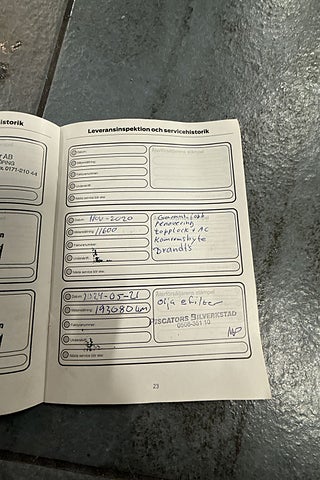 istorik
AB
ÖPING
0171-210 44
Leveransinspektion och servicehistorik
Datum:
Mätarställning:
Fakturanummer:
Underskrift:
Nästa service bör ske:
Återförsäljarens stämpel
Datum: Nov-2020
Mätarställning: 11600
Fakturanummer:
Underskrift:
Nästa service bör ske:
renovering
topplock + AC
Kamremsbyte
Brandts
Datum: 2021-05-21
Mätarställning: 193080 km
Fakturanummer:
Underskrift:
Nästa service bör ske:
Återförsäljarens stämpel
olja & filter
PISCATORS BILVERKSTAD
23